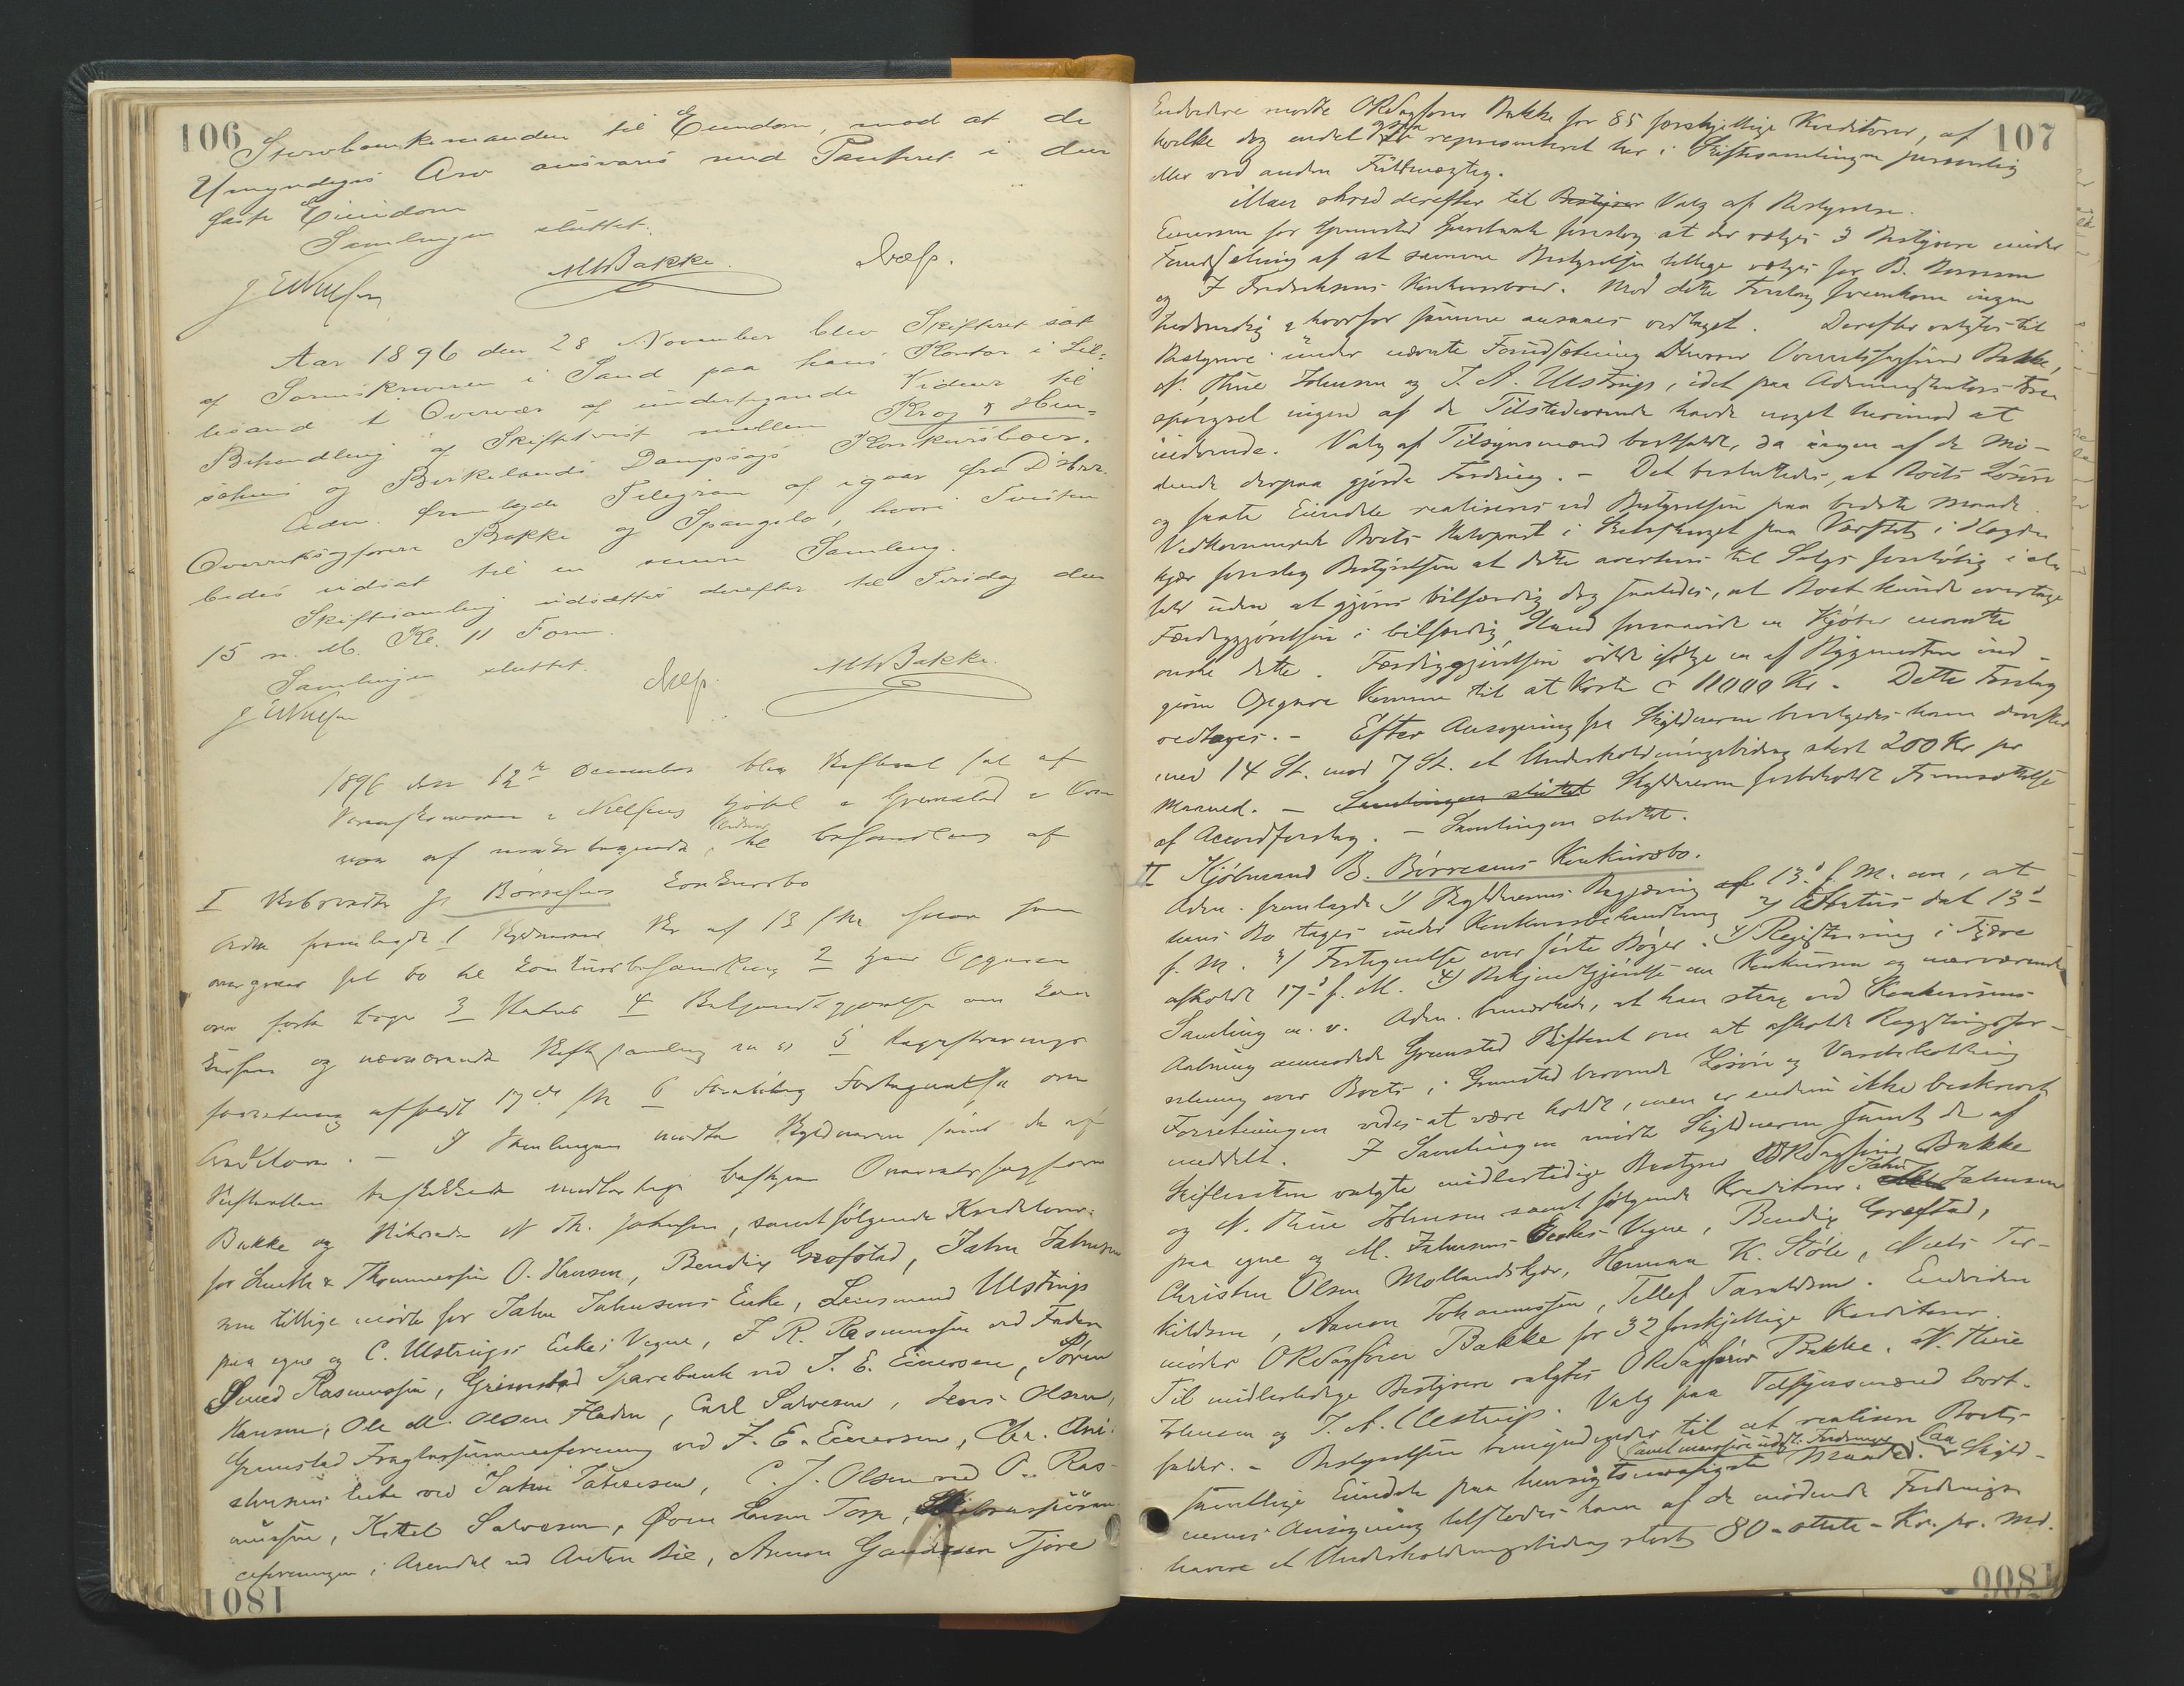 106
Storebaankemanden til Eiendom, mod at de
Umyndiges Arv ansvares med Panteret i den
faste Eiendom
Samlingen sluttet.
MWBakke.
Aar 1896 den 28 November blev Skifteret sat
af Sorenskriveren i Sand paa hans Kontor i Lil-
lesand i Overvær af undertegnede Vidner til
Behandling af Skiftetvist mellem Krog & Hen-
schens og Birkelands Dampsags Konkursboer.
Adm. fremlagde Telegram af igaar fra D'Herr.
Overretssagførere Bakke og Spangelo, hvori Tvisten
bedes udsat til en senere Samling.
Skiftesamling udsættes derefter til Tirsdag den
15 n. M. Kl. 11 Form.
Samlingen sluttet.
MWBakke.
1896 den 12te December blev Skifteret sat af
Sorenskriveren i Nielsens Hotel i Grimstad i Over
vær af undertegnede Vidner, til behandling af
I Skibsreder J. Børresens Konkursbo
Adm fremlagde 1 Skyldnerens Skr af 13 f M hvor han
overgiver sit bo til Konkursbehandling 2 hans Opgaver
over førte Bøger 3 Status 4 Bekjendtgjørelse om Kon
kursen og nærværende Skiftesamling m v 5 Registrerings
forretning afholdt 17de f M 6 Foreløbig Fortegnelse over
Creditorer. – I Samlingen mødte Skyldneren samt de af
Skifteretten beskikkede midlertidige bestyrere Overretssagfører
Bakke og Skibsreder N Th. Johnsen, samt følgende Kreditorer:
for Smith & Thommesen O. Hansen, Bendix Grefstad, Jahn Jahnsen
som tillige mødte for Jahn Jahnsens Enke, Lensmand Ulstrup
paa egne og C. Ulstrups Enkes Vegne, J. R. Rasmussen ved Faderen
Svend Rasmussen, Grimstad Sparebank ved J. E. Evensen, Søren
Hansen, Ole M. Olsen Fladen, Carl Salvesen, Jens Olsen,
Grimstad Fragtassuranceforening ved J. E. Evensen, Chr. Chri-
stensens Enke ved Jahn Jahnsen, C. J. Olsen ved O. Ras-
mussen, Kittel Salvesen, Oven Larsen Torp, Skibsassuran
ceforeningen i Arendal ved Anton Bie, Aanon Gundersen Tjore
1081
107
Endvidere mødte ORSagfører Bakke for 85 forskjellige Kreditorer, af
hvilke dog endel ogsaa representeret her i Skiftesamlingen personlig
eller ved anden Fuldmægtig.
Man skred derefter til Bestyrer Valg af Bestyrelse.
Evensen for Grimstad Sparebank foreslog at der vælges 3 Bestyrere under
Forudsætning af at samme Bestyrelse tillige vælges for B. Børresen
og J Fredriksens Konkursboer. Mod dette Forslag fremkom ingen
Indvending, hvorfor samme ansaaes vedtaget. Derefter valgtes til
Bestyrere under nævnte Forudsætning Herrer Overretssagfører Bakke,
N. Thue Johnsen og J. A. Ulstrup, idet paa Administrators Fore
spørgsel ingen af de Tilstedeværende havde noget herimod at
indvende. Valg af Tilsynsmænd bortfaldt, da ingen af de Mø-
dende derpaa gjorde Fordring. – Det besluttedes, at Boets Løsøre
og faste Eiendele realiseres ved Bestyrelsen paa bedste Maade.
Vedkommende Boets Halvpart i Skibsskroget paa Værftet i Hegge
kjær foreslog Bestyrelsen at dette averteres til Salgs foreløbig i als
fald uden at gjøres bilfærdig dog saaledes, at Boet kunde overtage
Færdiggjørelsen i bilfærdig Stand forsaavidt en Kjøber maatte
ønske dette. Færdiggjørelsen vilde ifølge en af Bygmesteren ind-
given Opgave komme til at koste c 11000 Kr. Dette Forslag
vedtoges. – Efter Ansøgning fra Skyldneren bevilgedes ham derefter
med 14 St. mod 7 St. et Underholdningsbidrag stort 200 Kr pr
Maaned. – Samlingen sluttet Skyldneren forbeholdt Fremsættelse
af Accordforslag. – Samlingen sluttet.
II Kjøbmand B. Børresens Konkursbo.
Adm. fremlagde 1) Skyldnerens Begjæring af 13de f. M. om, at
hans Bo tages under Konkursbehandling 2) Status dat 13de
f. M. 3) Fortegnelse over førte Bøger. 4) Registrering i Fjære
afholdt 17de f. M. 4) Bekjendtgjørelse om Konkursen og nærværende
Samling m. v. Adm. bemærkede, at han strax ved Konkursens
Aabning anmodede Grimstad Skifteret om at afholde Registringsfor-
retning over Boets i Grimstad beroende Løsøre og Varebeholdning
Forretningen vides at være holdt, men er endnu ikke beskreven
meddelt. I Samlingen mødte Skyldneren samt de af
Skifteretten valgte midlertidige Bestyrere ORSagfører Bakke
og N. Thue Johnsen samt følgende Kreditorer. Jahn Jahnsen
paa egne og M. Jahnsens Enkes Vegne, Bendix Grefstad,
Christen Olsen Mollandskjær, Herman K. Støle, Niels Ter-
kildsen, Aanon Johannessen, Tellef Taraldsen. Endvidere
møder ORSagfører Bakke for 32 forskjellige Kreditorer.
Til midlertidige Bestyrere valgtes ORSagfører Bakke, N. Thue
Johnsen og J. A. Ulstrup. Valg paa Tilsynsmænd bort-
faldt. – Bestyrelsen bemyndigedes til at realisere Boets
samtlige Eiendele paa hensigtsmæssigste Maade. Paa Skyld-
nerens Ansøgning tilstodes ham af de mødende Fordrings
havere et Underholdningsbidrag stort 80 – otteti – Kr. pr. Md.
1800